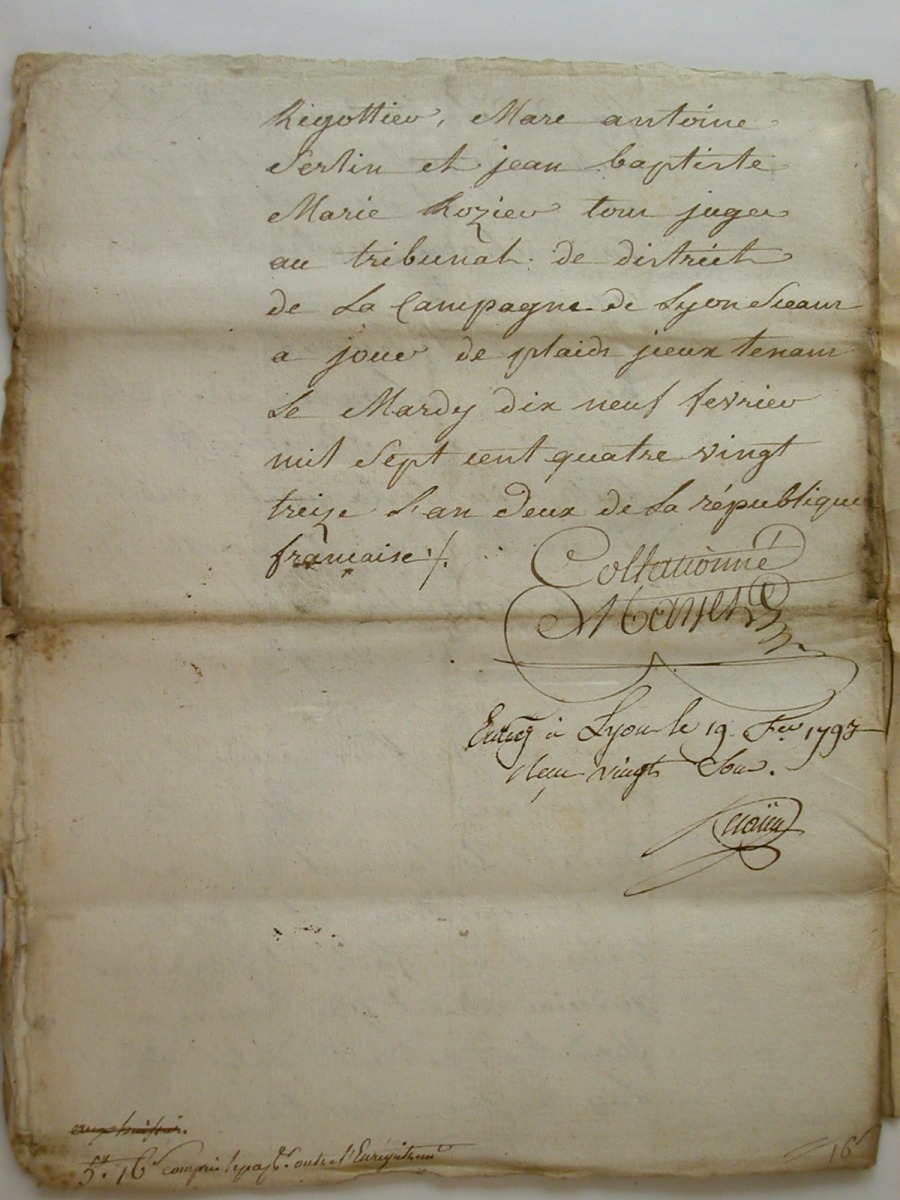 Rigottier, Marc antoine
Serlin et jean baptiste
Marie Rozier tous juges
au tribunal de district
de La Campagne de Lyon Séeans
a jour de plaids jceux tenans
Le Mardy dix neuf fevrier
mil Sept cent quatre vingt
treize L'an Deux de La république
française ./.
Collationné
à Lyon le 19 Fer 1793
vingt Sous.
5# 16s compris le outre l'Enregistrem
16s